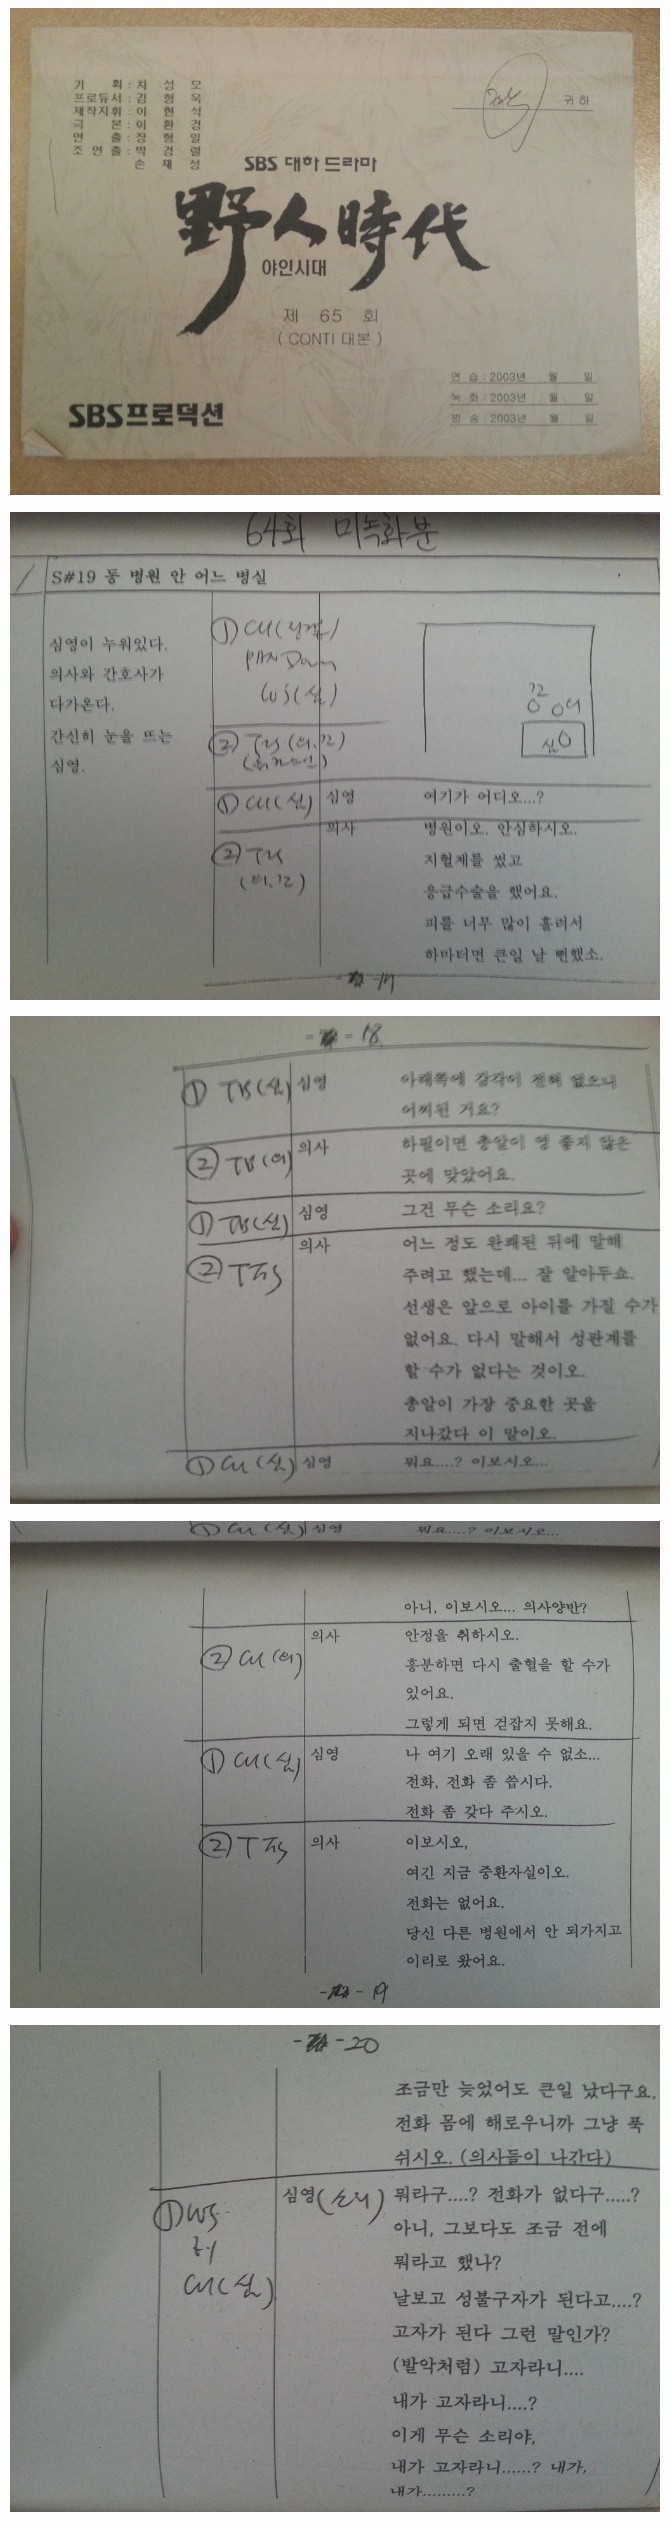 기 획 : 차 성 모
프로듀서 : 김 형 욱
제작지휘 : 이 현 석
극 본 : 이 환 경
연 출 : 장 형 일
조 연 출 : 박 경 렬
손 재 성
귀 하
SBS 대하 드라마
野人時代
야인시대
제 65 회
( CONTI 대본 )
연 습 : 2003년 월 일
녹 화 : 2003년 월 일
방 송 : 2003년 월 일
SBS프로덕션
64회 미녹화분
S#19 동 병원 안 어느 병실
심영이 누워있다.
의사와 간호사가
다가온다.
간신히 눈을 뜨는
심영.
① CU
PAN Down
WS (심)
②
심
① CU (심) 심영 여기가 어디오...?
의사 병원이오. 안심하시오.
② 지혈제를 썼고
응급수술을 했어요.
피를 너무 많이 흘려서
하마터면 큰일 날 뻔했소.
- 17
- 18
① TB (심) 심영 아래쪽에 감각이 전혀 없으니
어찌된 거요?
② TB (의) 의사 하필이면 총알이 영 좋지 않은
곳에 맞았어요.
① TB (심) 심영 그건 무슨 소리요?
의사 어느 정도 완쾌된 뒤에 말해
② 주려고 했는데... 잘 알아두쇼.
선생은 앞으로 아이를 가질 수가
없어요. 다시 말해서 성관계를
할 수가 없다는 것이오.
총알이 가장 중요한 곳을
지나갔다 이 말이오.
① CU (심) 심영 뭐요....? 이보시오...
① CU (심) 심영 뭐요....? 이보시오...
아니, 이보시오... 의사양반?
의사 안정을 취하시오.
② CU (의) 흥분하면 다시 출혈을 할 수가
있어요.
그렇게 되면 걷잡지 못해요.
① CU (심) 심영 나 여기 오래 있을 수 없소...
전화, 전화 좀 씁시다.
전화 좀 갖다 주시오.
② 의사 이보시오,
여긴 지금 중환자실이오.
전화는 없어요.
당신 다른 병원에서 안 되가지고
이리로 왔어요.
- 19
- 20
조금만 늦었어도 큰일 났다구요.
전화 몸에 해로우니까 그냥 푹
쉬시오. (의사들이 나간다)
① WS 심영 (소리) 뭐라구....? 전화가 없다구.....?
아니, 그보다도 조금 전에
뭐라고 했나?
CU (심) 날보고 성불구자가 된다고....?
고자가 된다 그런 말인가?
(발악처럼) 고자라니....
내가 고자라니....?
이게 무슨 소리야,
내가 고자라니......? 내가,
내가.........?